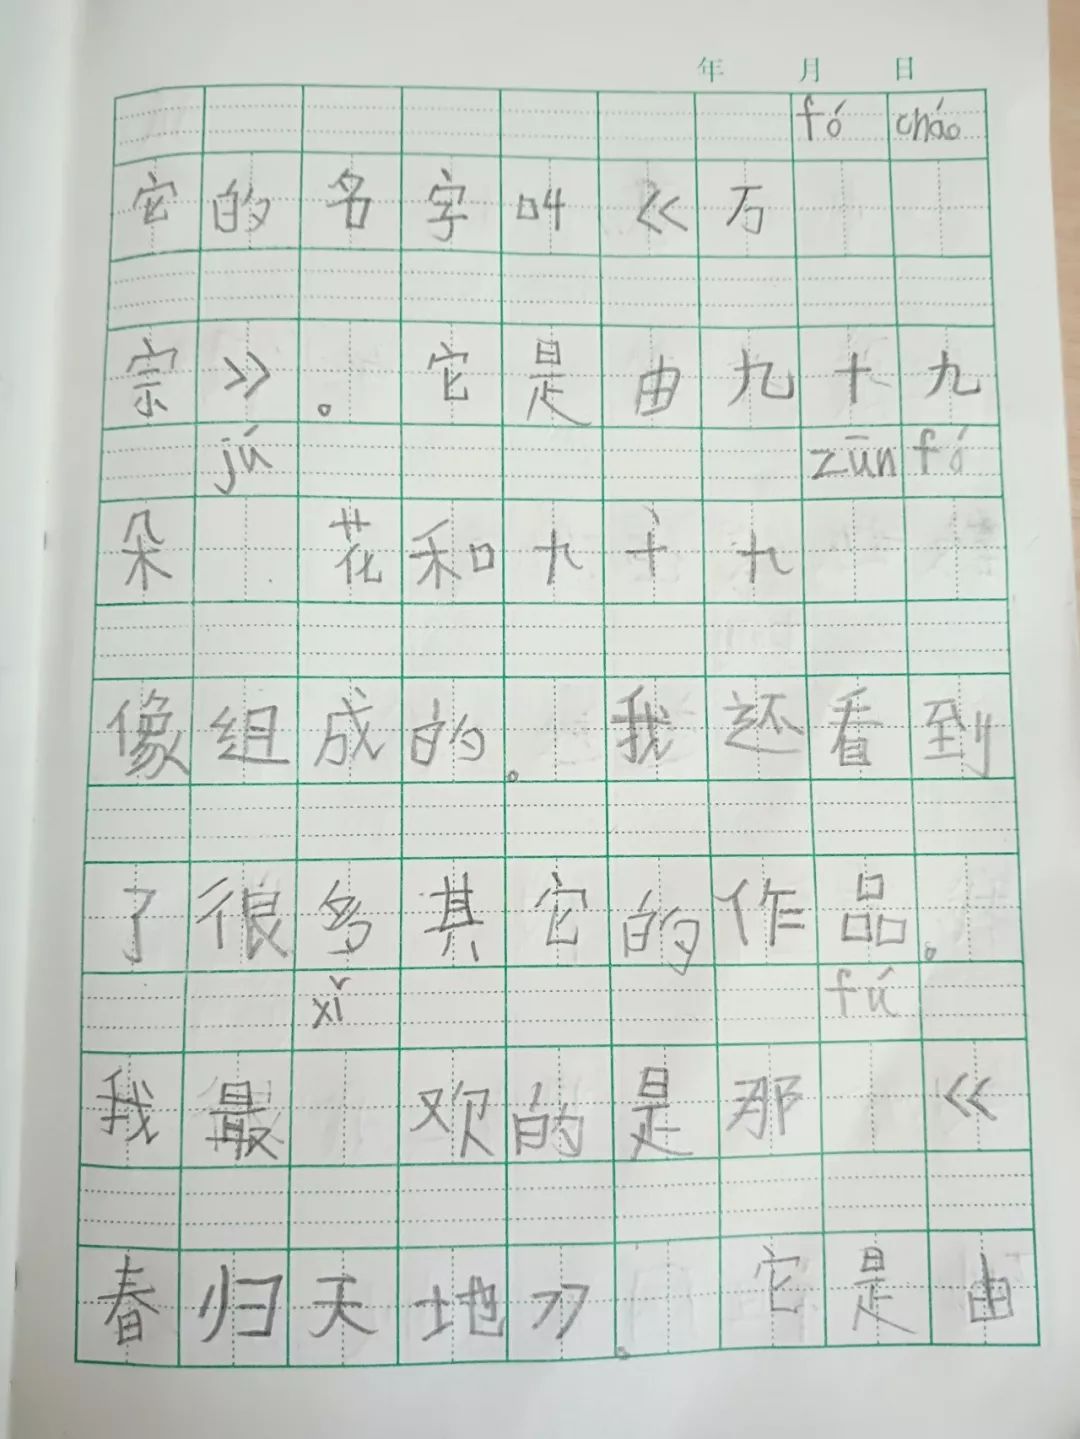 年 月 日
fó cháo
它的名字叫《万
宗》。它是由九十九
jú zūn fó
朵 花和九十九
像组成的。我还看到
了很多其它的作品。
xǐ fú
我最 欢的是那 《
春归天地》。它是由